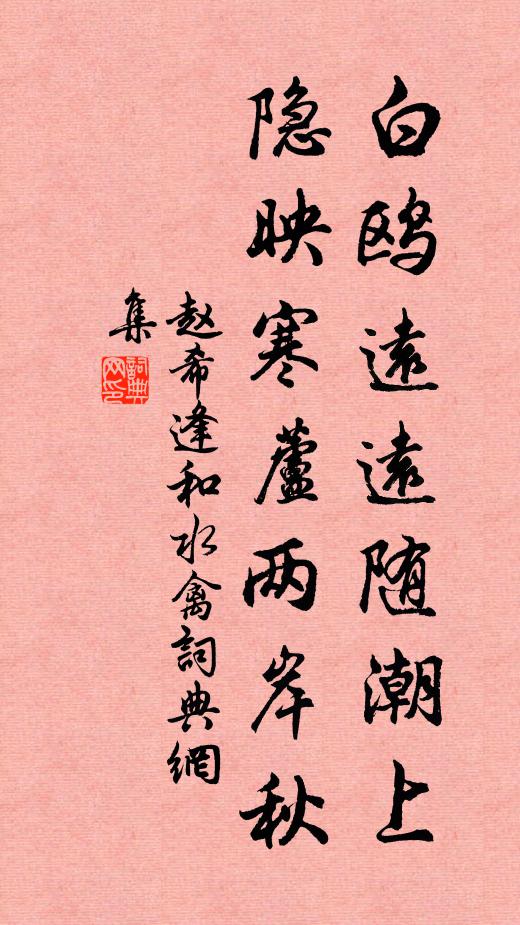 白鸥遠遠随潮上
隐映寒蘆两岸秋
赵希逢和水禽詞典網
集
詞典網印